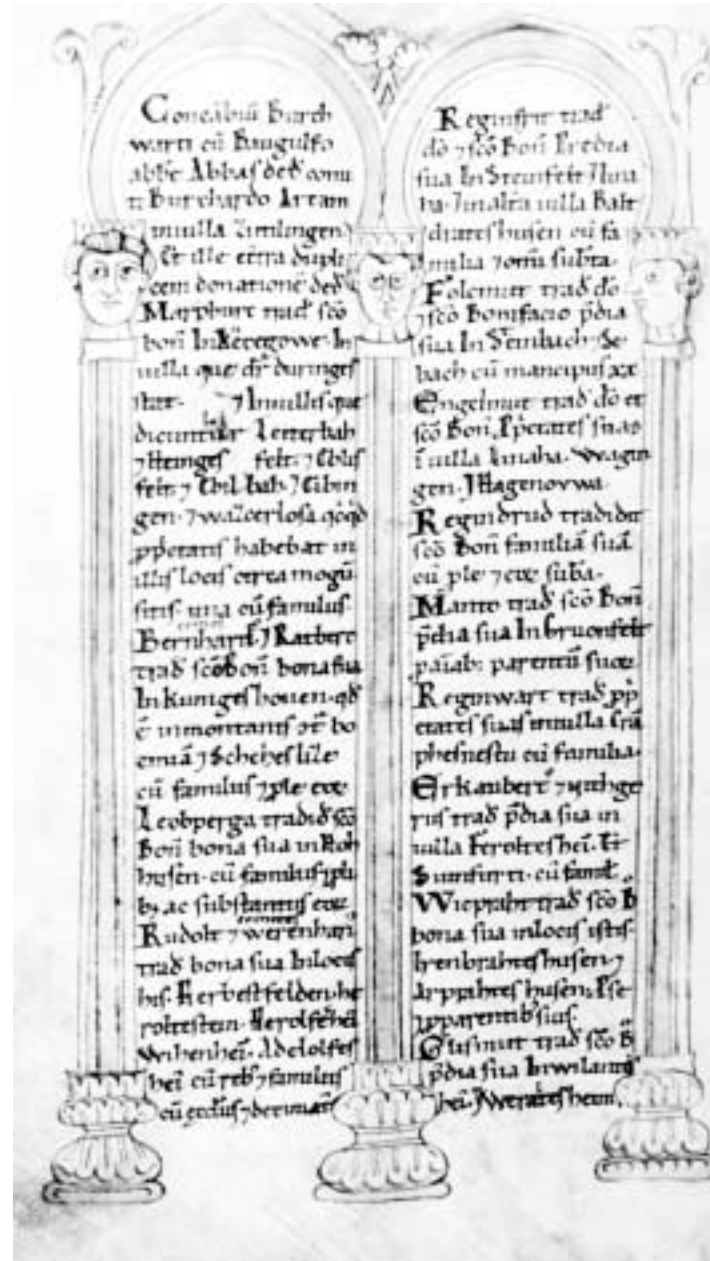 Concābiū Burch
warti cū Baugulfo
abbe Abbas ded comi
ti Burchardo Artam
in uilla
Et ille ecōtra dupli
cem donationē ded
Marpburc trad scō
bon In In
uilla que dr duringes
stat. ⁊ In uillis que
dicuntur Letterbah
⁊ Heinges felt. ⁊ Eblis
felt. ⁊ Ebilbah. ⁊ Eibin
gen. ⁊ walcerlosa qcqd
ppetatis habebat in
illis locis circa mogū
sitis. una cū familiis.
Bernhard ⁊ Ratbert
trad scō bon bona sua
In kuniges houen. qd
ē in montanis ct bo
emiā ⁊
cū familiis ⁊ ple eoꝝ
Leobperga tradid scō
Bon bona sua in Roh
husen. cū familiis ⁊ pli
bꝫ ac substantiis eoꝝ
Rudolt ⁊ werenhari
trad bona sua In locis
his. Herbestfelden. he
roltestein. Herolfeshei
Wihenhei. Adelolfes
hei cū reb ⁊ familiis
cū ęccliis ⁊ decimat
Reginfrit trad
dō ⁊ scō Bon Predia
sua In Steinfelt ⁊ lina
ha. ⁊ in altā uilla Balt
drateshusen cū fa
milia ⁊ omī subta.
Folcmut trad dō
⁊ scō Bonifacio pdia
sua In Steinbach. Se
bach cū mancipiis xx
Engelmut trad dō et
scō Bon Ppetates suas
ī uilla linaha. Wagin
gen. ⁊ Hagenovwa.
Regindrud tradidit
scō Bon familiā suā
cū ple ⁊ eoꝝ suba.
Manto trad scō Bon
pdia sua In bruonfelt
paiab; parentū suoꝝ
Reginwart trad pp
etates suas in uilla
phesnestu cū familia.
Erkanbert ⁊ nithge
rus trad pdia sua in
uilla Feroltesheī. Et
Suinfurti. cū famil
Wicpraht trad scō B
bona sua in locis istis.
Irenbrahteshusen ⁊
Arppahteshusen. Pse
⁊ p parentib suis.
Otismut trad scō B
pdia sua In wilantis
hei. ⁊ Weratesheim.